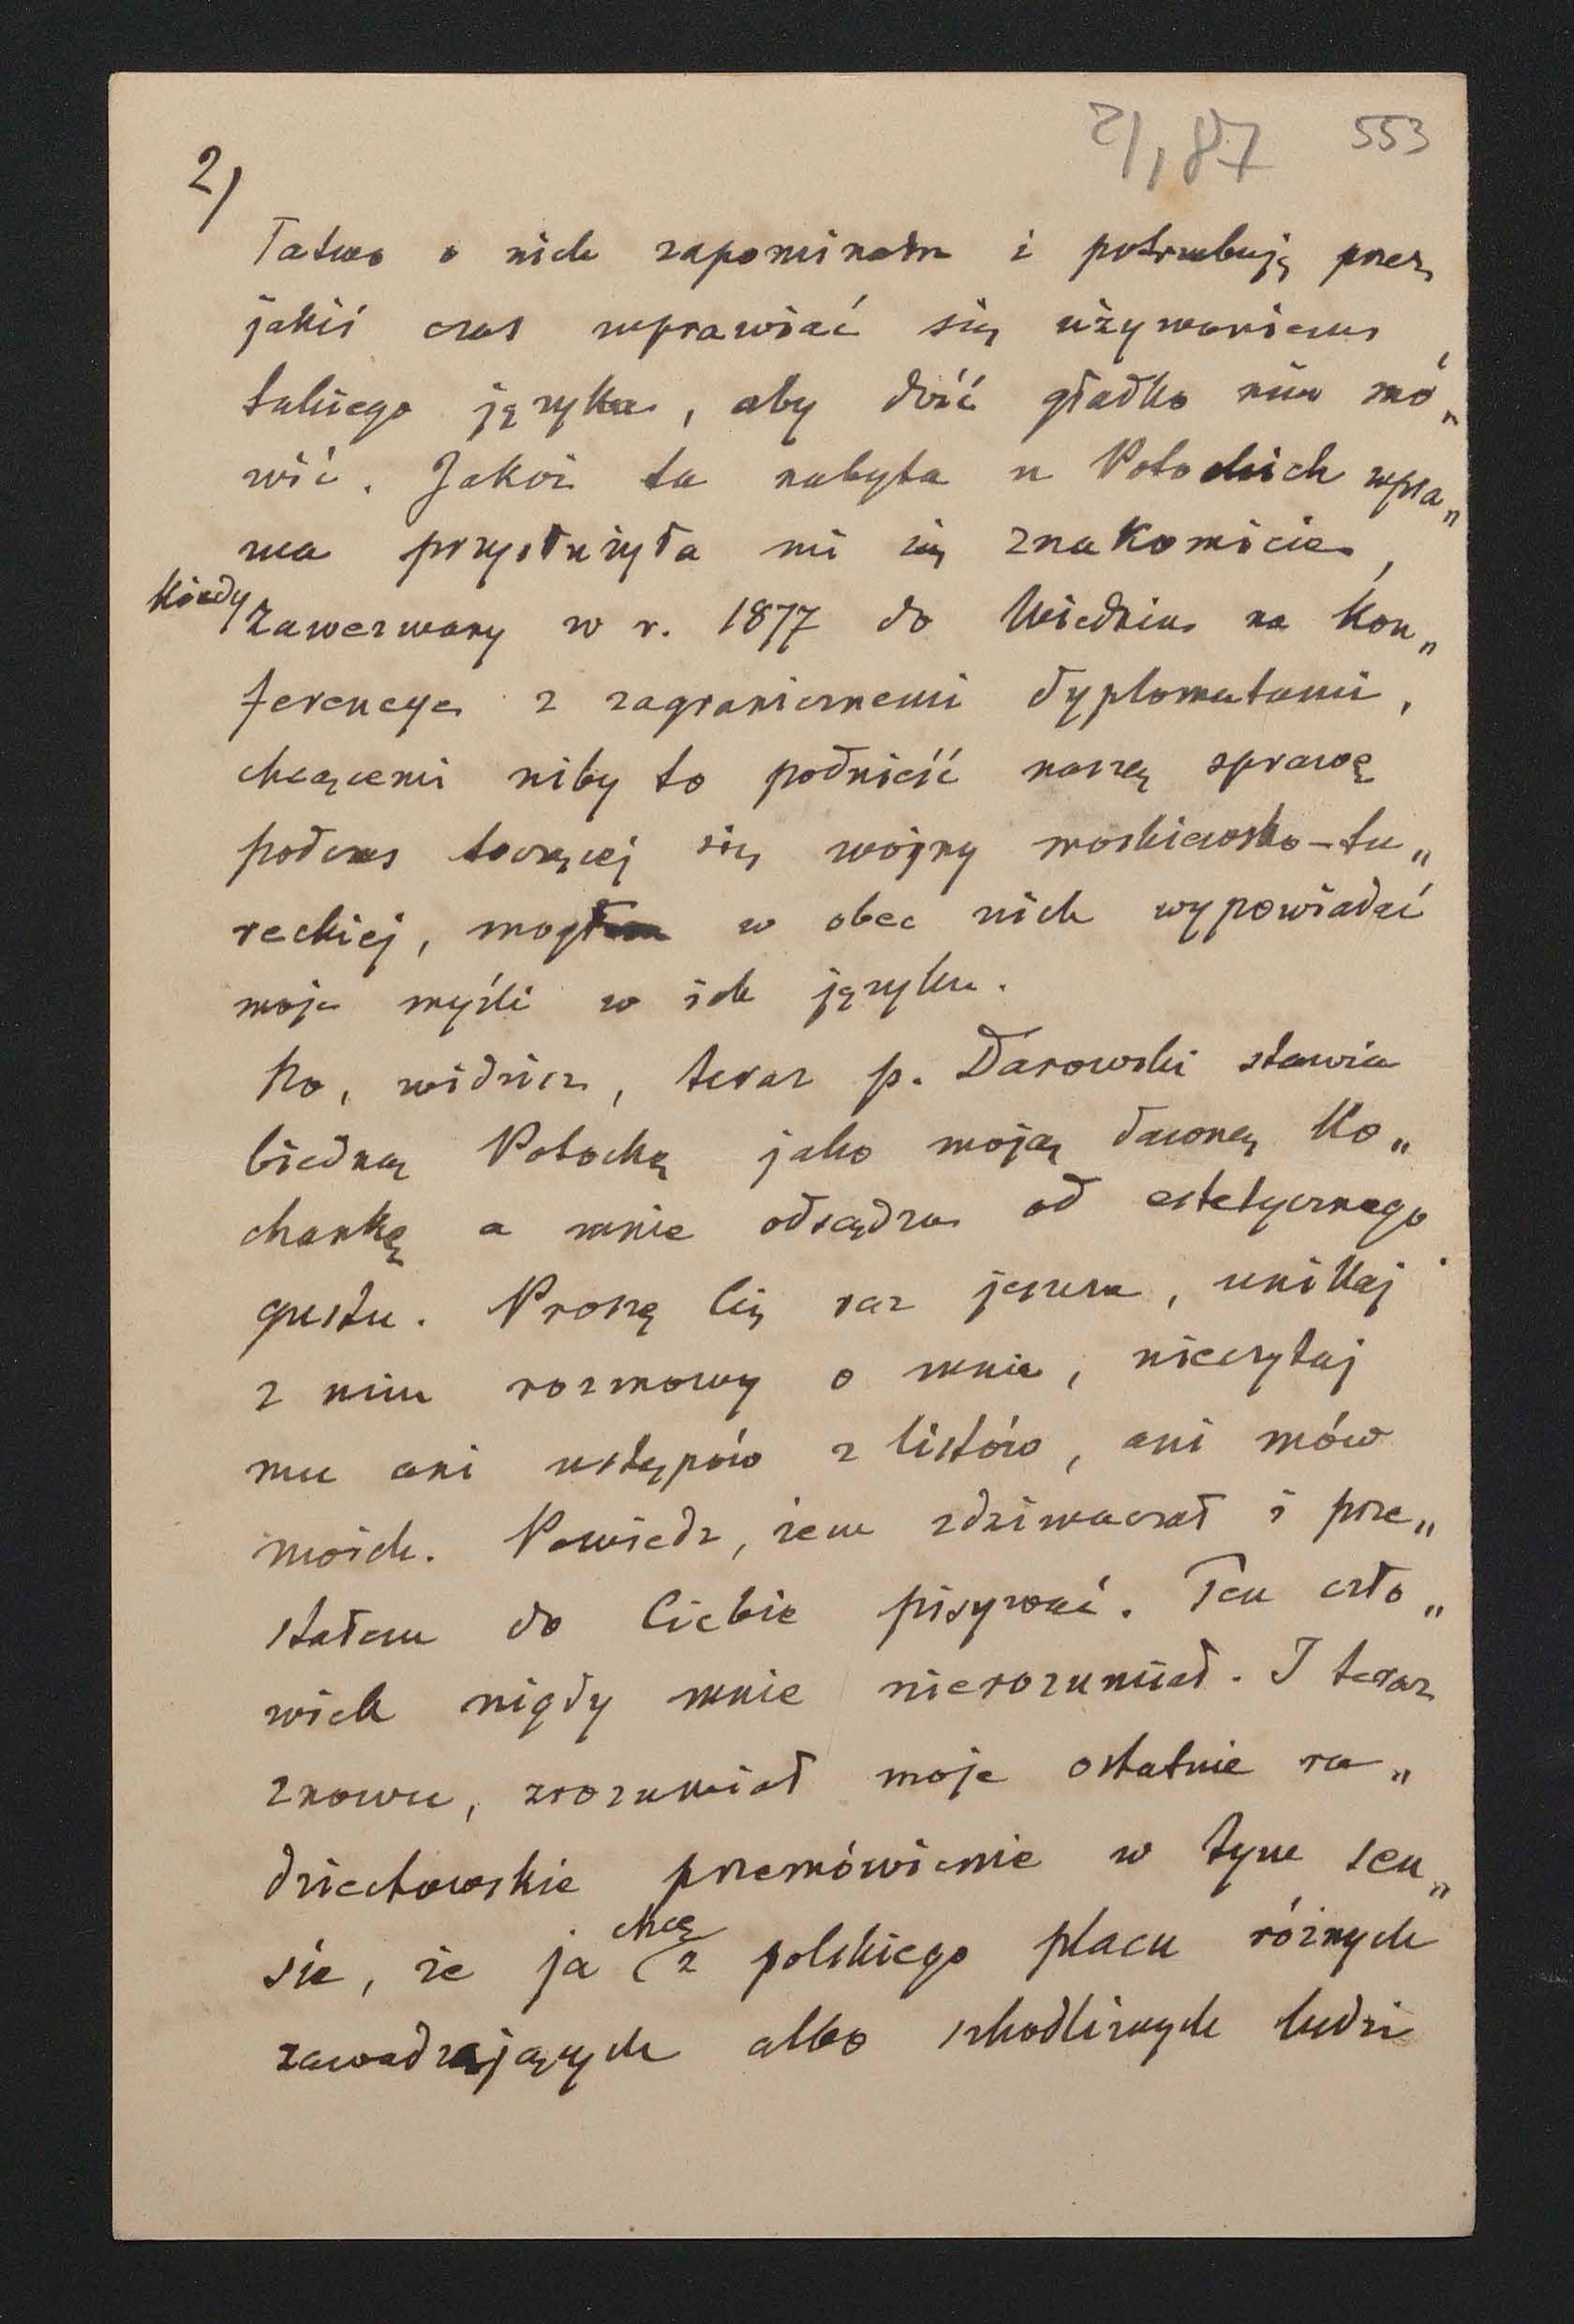 2/,87 553
2/
Łatwo o nich zapominam i potrzebuję przez
jakiś czas wprawiać się używaniem
takiego języka, aby dość gładko nim mó„
wić. Jakoż ta nabyta u Potockich wpra„
wa przysłużyła mi się znakomicie,
kiedy zawezwany w r. 1877 do Wiednia na kon„
ferencye z zagranicznemi dyplomatami,
chcącemi niby to podnieść naszą sprawę
podczas toczącej się wojny moskiewsko-tu„
reckiej, mogłem w obec nich wypowiadać
moje myśli w ich języku.
No, widzisz, teraz p. Darowski stawia
biedną Potocką jako moją dawną ko„
chankę a mnie odsądza od estetycznego
gustu. Proszę Cię raz jeszcze, unikaj
z nim rozmowy o mnie, nieczytaj
mu ani ustępów z listów, ani mów
moich. Powiedz, żem zdziwaczał i prze„
stałem do Ciebie pisywać. Ten czło„
wiek nigdy mnie nierozumiał. I teraz
znowu, zrozumiał moje ostatnie ra„
dziectowskie przemówienie w tym sen„
sie, że ja chcę z polskiego placu różnych
zawadzających albo szkodliwych ludzi